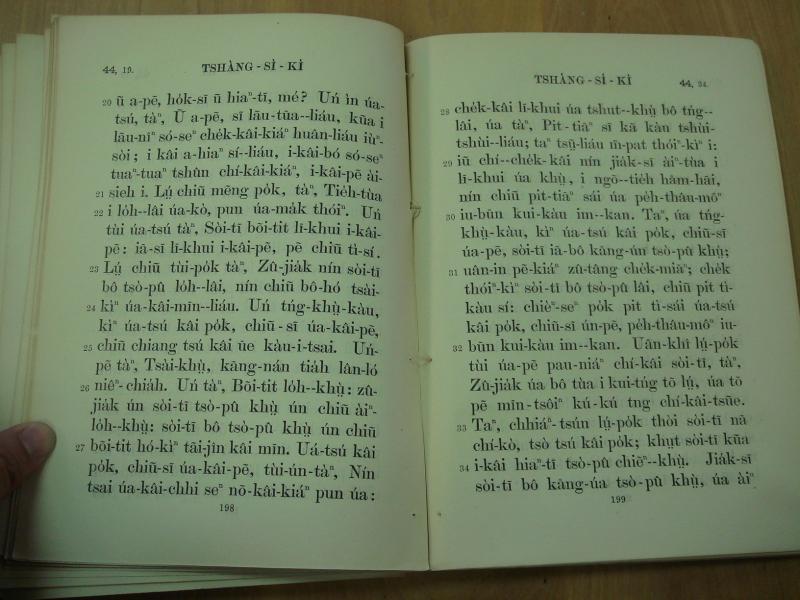 44, 19.
TSHÀNG - SÌ - KÌ
20 ū a-pē, hók-sī ū hiaⁿ-tī, mé? Uń ìn úa-
tsú, tàⁿ, Ū a-pē, sĩ lāu-tūa--liáu, kūa i
lāu-nîⁿ só-seⁿ chêk-kâi-kiáⁿ huân-liáu iùⁿ-
sòi; i kâi a-hiaⁿ sí--liáu, i-kâi-bó só-seⁿ
tuaⁿ-tuaⁿ tshûn chí-kâi-kiáⁿ, i-kâi-pē ài-
21 sieh i. Lṳ́ chiū mēng po̍k, tàⁿ, Tie̍h-tùa
22 i lo̍h--lâi úa-kò, pun úa-ma̍k thóiⁿ. Uń
tùi úa-tsú tàⁿ, Sòi-tĩ bōi-tit lī-khui i-kâi-
pē: iā-sĩ lī-khui i-kâi-pē, pē chiū tì-sí.
23 Lṳ́ chiū tùi-po̍k tàⁿ, Zû-jiák nín sòi-tĩ
bô tsò-pû lo̍h--lâi, nín chiū bô-hó tsài-
24 kìⁿ úa-kâi-mīn--liáu. Uń tńg-khṳ̀-kàu,
kìⁿ úa-tsú kâi po̍k, chiū - sĩ úa-kâi-pē,
25 chiū chiang tsú kâi ūe kàu-i-tsai. Uń-
pē tàⁿ, Tsài-khṳ̀, kāng-nán tia̍h lân-ló
26 niêⁿ-chia̍h. Uń tàⁿ, Bōi-tit lo̍h--khṳ̀: zû-
jiák ún sòi-tĩ tsò-pû khṳ̀ ún chiū àiⁿ-
lo̍h--khṳ̀: sòi-tĩ bô tsò-pû khṳ̀ ún chiū
27 bōi-tit hó-kìⁿ tāi-jîn kâi mīn. Uá-tsú kâi
po̍k, chiū-sĩ úa-kâi-pē, tùi-ún-tàⁿ, Nín
tsai úa-kâi-chhi seⁿ nō-kâi-kiáⁿ pun úa:
198
TSHÀNG - SÌ - KÌ
44, 34.
28 che̍k-kâi lī-khui úa tshut--khṳ̀ bô tńg--
lâi, úa tàⁿ, Pit-tiāⁿ sĩ kā kàu tshùi-
tshùi-liáu; taⁿ tsṳ̄-liáu m̄-pat thóiⁿ-kìⁿ i:
29 iũ chí--che̍k-kâi nín jia̍k-sĩ ài-tùa i
lī-khui úa khṳ̀, i ngõ--tie̍h hām-hāi,
nín chiū pit-tiāⁿ sái úa pe̍h-thâu-môⁿ
30 iu-būn kui-kàu im--kan. Taⁿ, úa tńg-
khṳ̀-kàu, kìⁿ úa-tsú kâi po̍k, chiū-sĩ
úa-pē, sòi-tĩ iā-bô kāng-ún tsò-pû khṳ̀;
31 uân-in pē-kiáⁿ zû-tâng che̍k-miāⁿ; che̍k
thóiⁿ-kìⁿ sòi-tĩ bô tsò-pû lâi, chiū pit tì-
kàu sí: chièⁿ-seⁿ po̍k pit tì-sái úa-tsú
kâi po̍k, chiū-sĩ ún-pē, pe̍h-thâu-môⁿ iu-
32 būn kui-kàu im--kan. Uân-khî lṳ́-po̍k
tùi úa-pē pau-niáⁿ chí-kâi sòi-tĩ, tàⁿ,
Zû-jia̍k úa bô tùa i kui-tńg tõ lṳ́, úa tõ
pē mīn-tsôiⁿ kú-kú tng chí-kâi-tsūe.
33 Taⁿ, chhiáⁿ-tsún lṳ́-po̍k thòi sòi-tĩ nā
chí-kò, tsò tsú kâi po̍k; khṳt sòi-tĩ kūa
34 i-kâi hiaⁿ-tĩ tsò-pû chiẽⁿ--khṳ̀. Jia̍k-sĩ
sòi-tĩ bô kāng-úa tsò-pû khṳ̀, úa àiⁿ
199